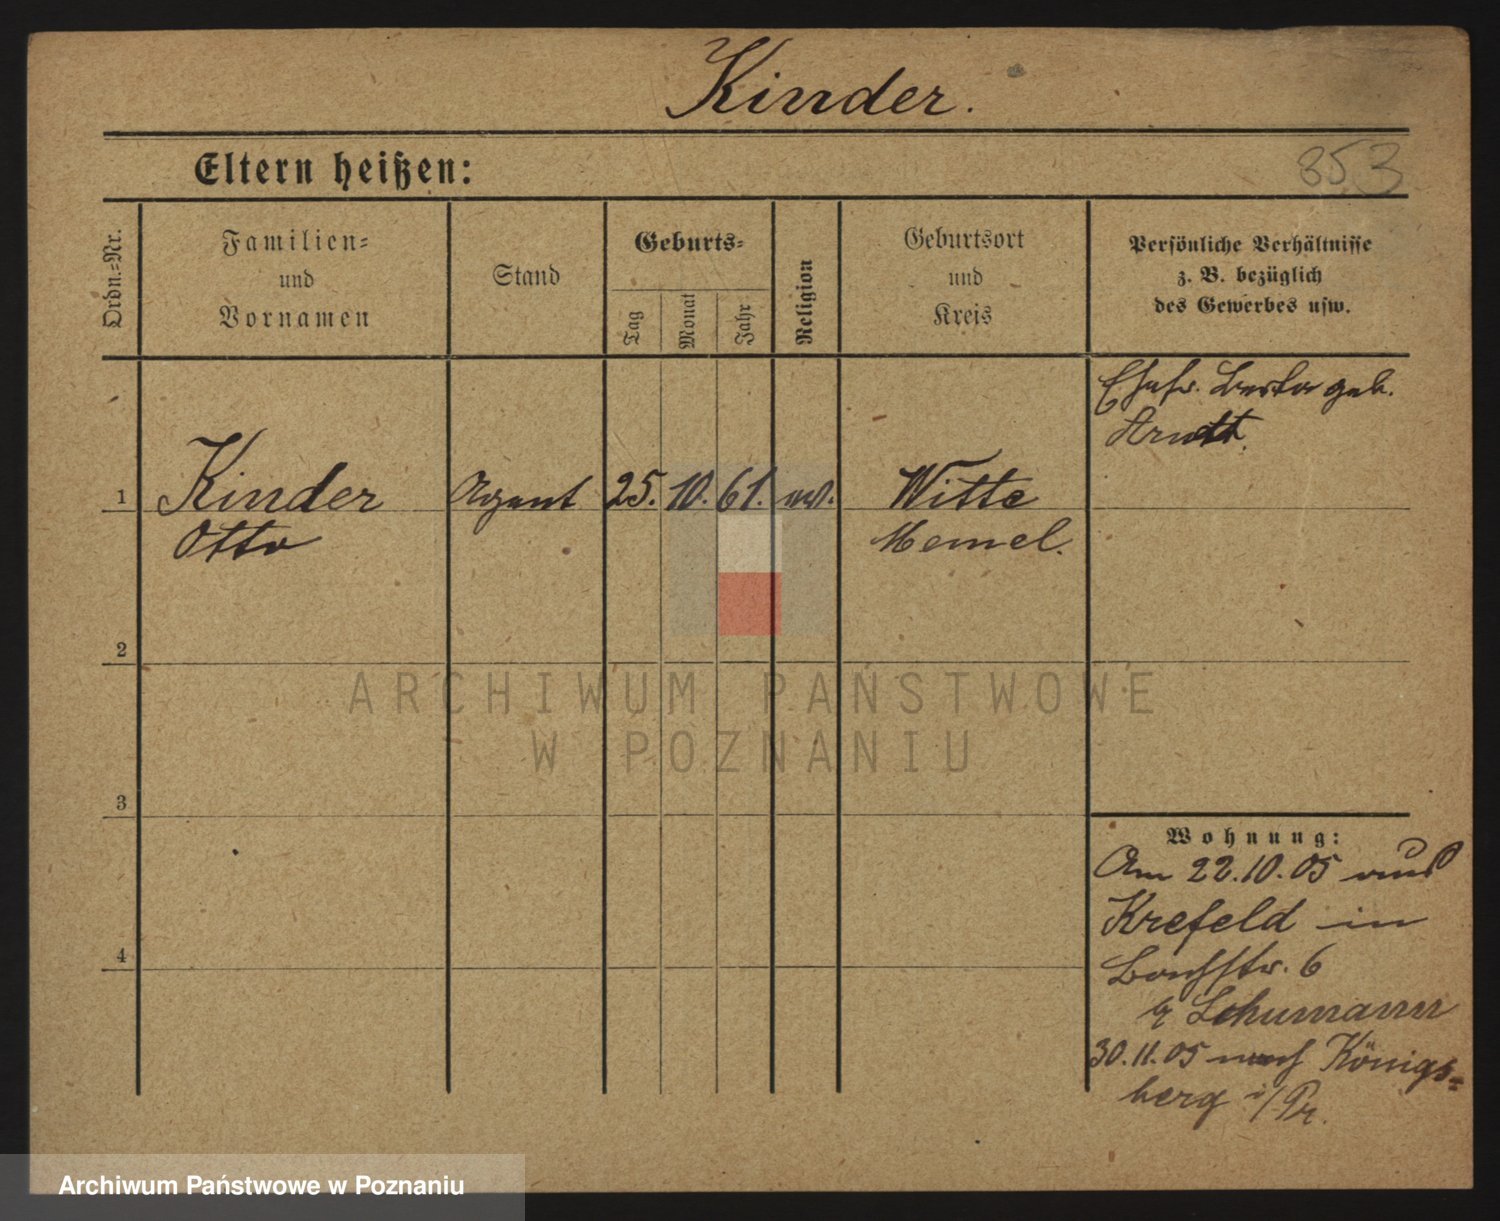 Kinder.
Eltern heißen:
853
Ordn.=Nr.
Familien=
und
Vornamen
Stand
Geburts=
Tag
Monat
Jahr
Religion
Geburtsort
und
Kreis
Persönliche Verhältnisse
z. B. bezüglich
des Gewerbes usw.
Ehefr. Berta geb.
Arndt.
1
Kinder
Agent
25.
10.
61.
ev.
Witte
Otto
Memel.
2
ARCHIWUM PAŃSTWOWE
W POZNANIU
3
Wohnung:
Am 22.10.05 aus
Krefeld in
4
6
Schumann
30.11.05 nach Königs=
berg i/Pr.
Archiwum Państwowe w Poznaniu